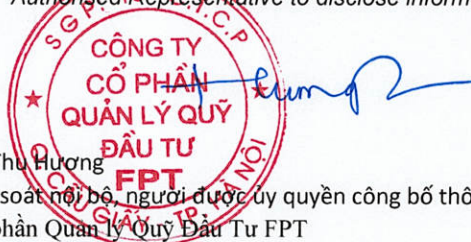 Authorised Representative to disclose inform
SGP
C.P
CÔNG TY
CỔ PHẦN
QUẢN LÝ QUỸ
ĐẦU TƯ
FPT
Q. CẦU GIẤY - TP. HÀ NỘI
Hương
Thu Hương
soát nội bộ, người được ủy quyền công bố thô
phần Quản lý Quỹ Đầu Tư FPT